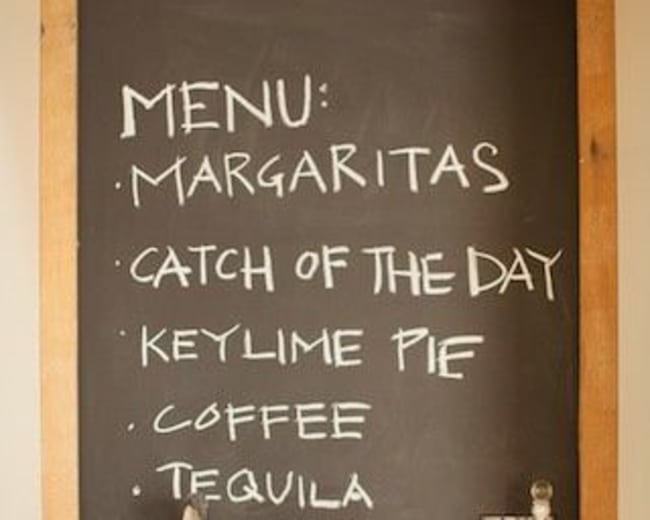 MENU:
· MARGARITAS
· CATCH OF THE DAY
· KEYLIME PIE
· COFFEE
· TEQUILA